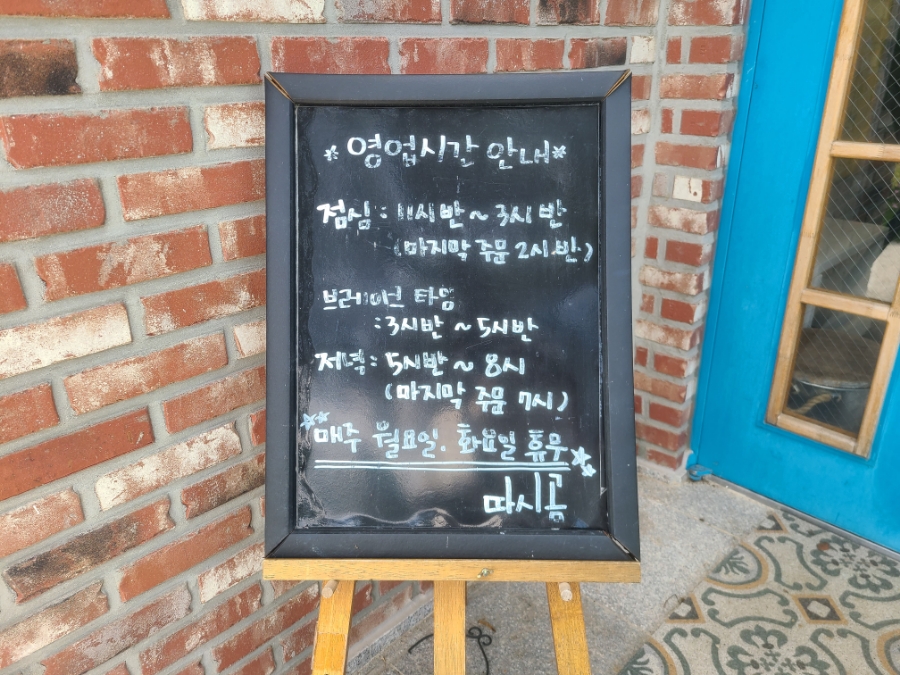 *영업시간 안내*
점심: 11시반 ~ 3시반
(마지막 주문 2시반)
브레이브 타임
:3시반 ~ 5시반
저녁: 5시반 ~ 8시
(마지막 주문 7시)
매주 월요일. 화요일 휴무
따시곰